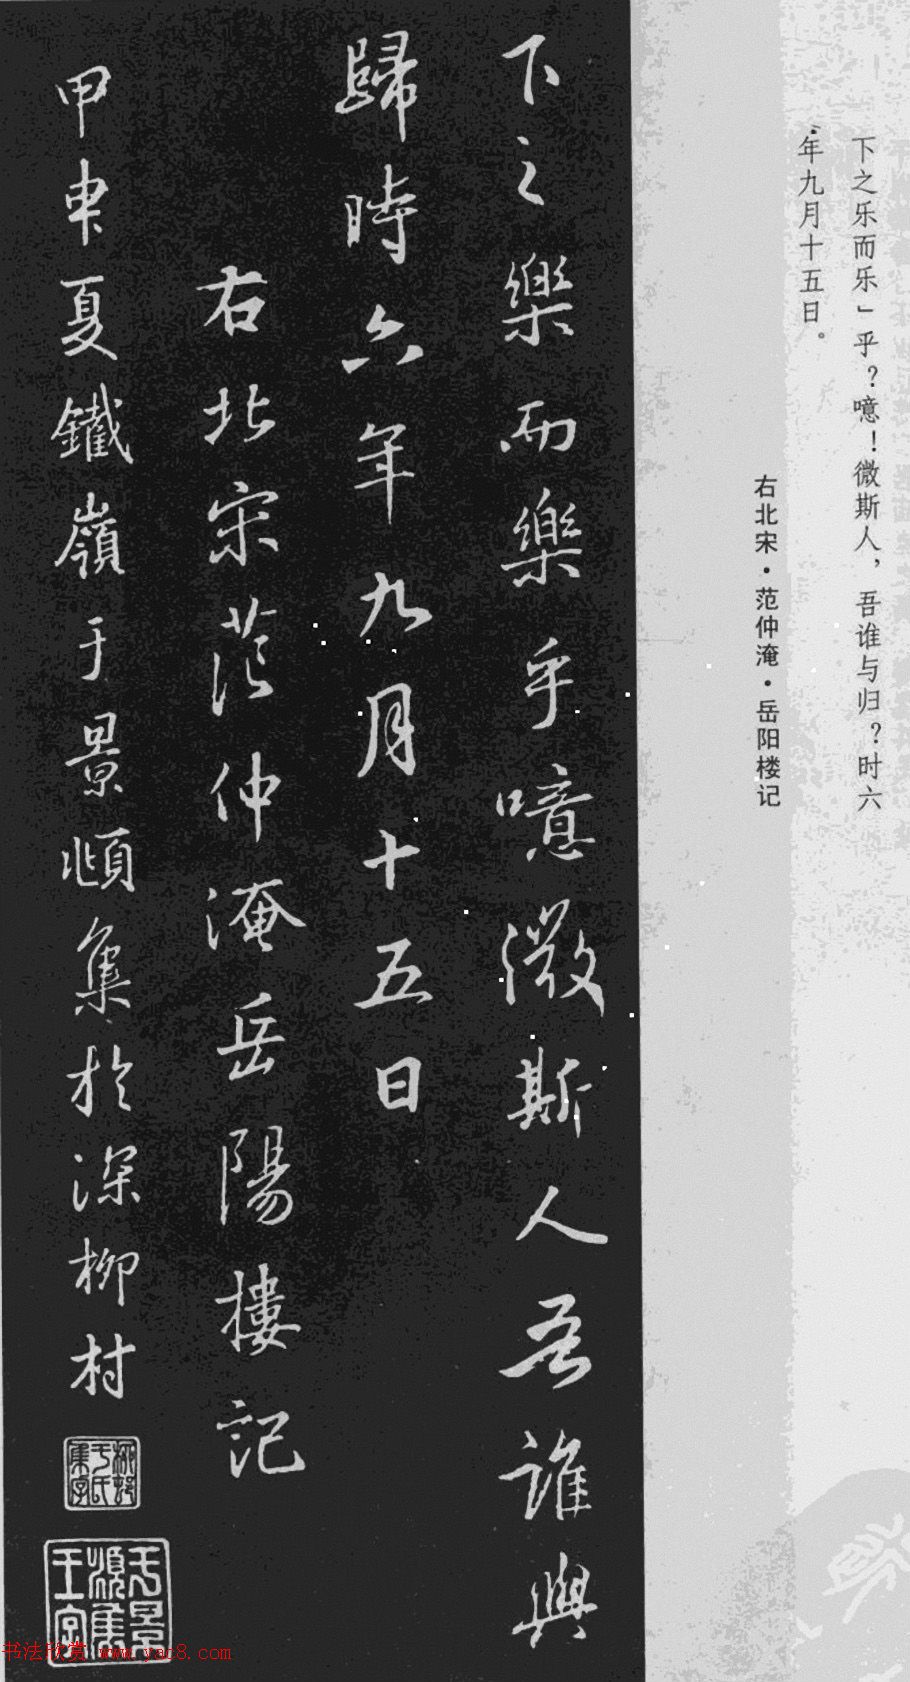 下之樂而樂乎噫微斯人吾誰與
歸時六年九月十五日
右北宋范仲淹岳陽樓記
甲申夏鐵嶺于景頫集於深柳村
下之乐而乐」乎？噫！微斯人，吾谁与归？时六
年九月十五日。
右北宋·范仲淹·岳阳楼记
书法欣赏 www.yac8.com